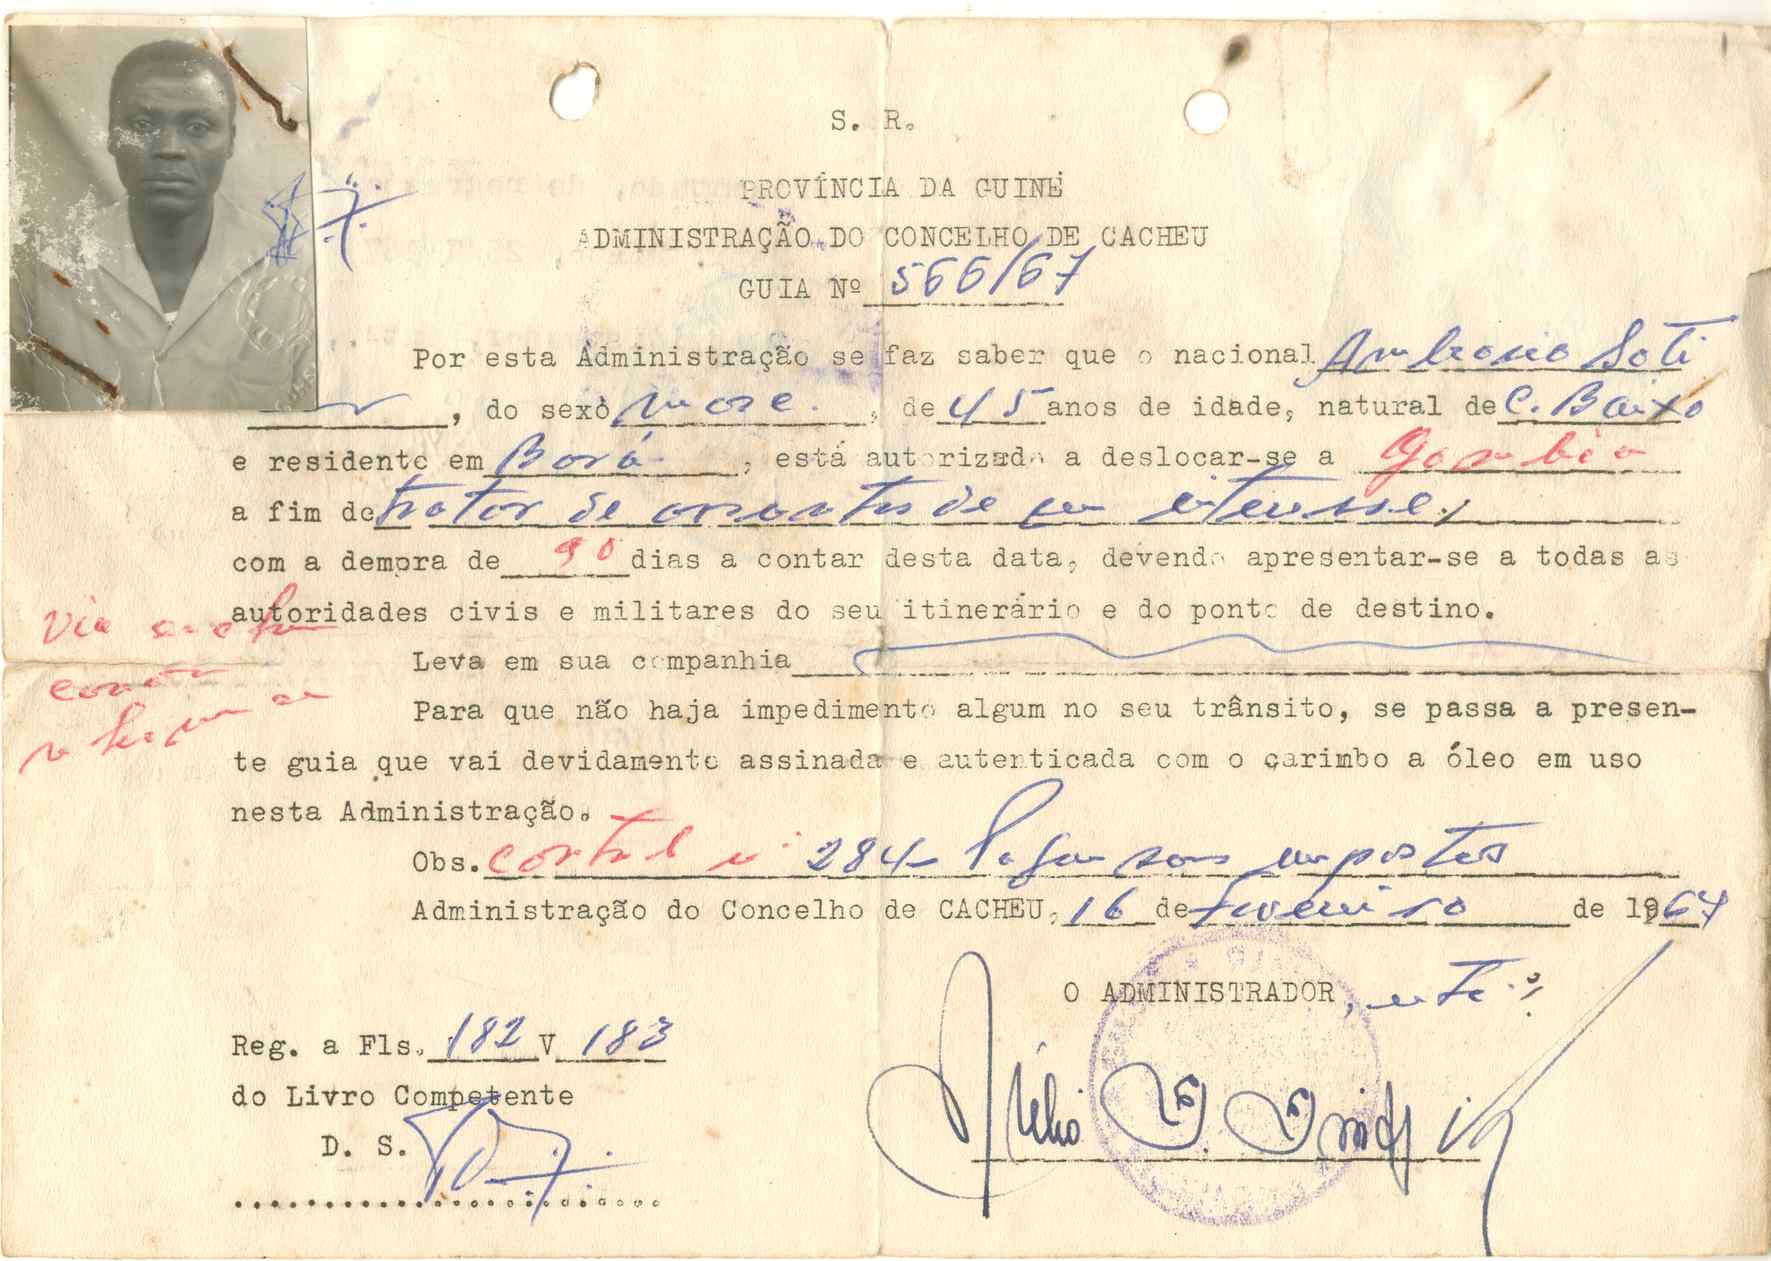 S. R.
PROVÍNCIA DA GUINÉ
ADMINISTRAÇÃO DO CONCELHO DE CACHEU
GUIA Nº 566/67
Por esta Administração se faz saber que o nacional Ambrosio Soti
, do sexo masc. , de 45 anos de idade, natural de C. Baixo
e residente em Borá , está autorizado a deslocar-se a Gambia
a fim de tratar de assuntos de seu interesse,
com a demora de 90 dias a contar desta data, devendo apresentar-se a todas as
autoridades civis e militares do seu itinerário e do ponto de destino.
Via
Leva em sua companhia
Para que não haja impedimento algum no seu trânsito, se passa a presen-
te guia que vai devidamente assinada e autenticada com o carimbo a óleo em uso
nesta Administração.
Obs. 284 - Pagou seus impostos
Administração do Concelho de CACHEU, 16 de Fevereiro de 1967
O ADMINISTRADOR,
Reg. a Fls. 182 V 183
do Livro Competente
D. S.